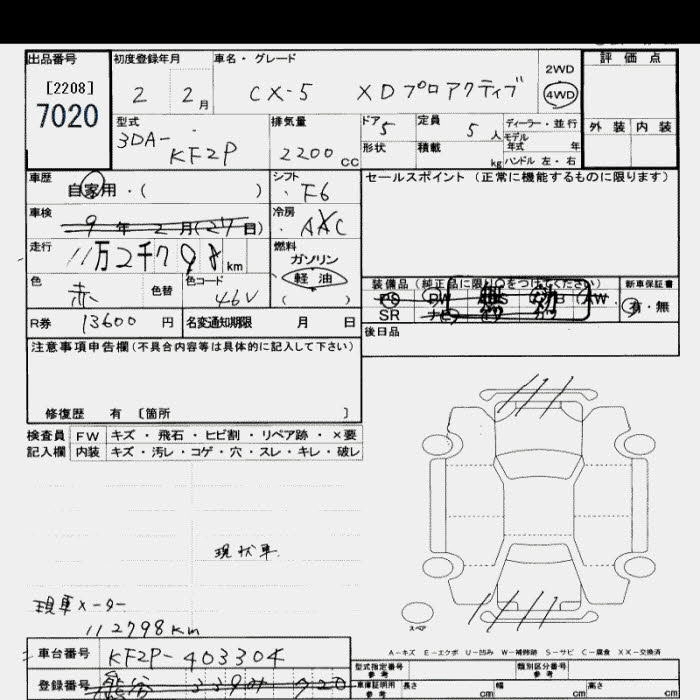 出品番号
[2208]
7020
初度登録年月
2 2月
車名・グレード
CX-5 XDプロアクティブ
2WD
4WD
評価点
外装 内装
型式
3DA-
KF2P
排気量
2200cc
ドア 5
形状
定員 5人
積載 kg
ディーラー・並行
モデル
年式 年
ハンドル 左・右
車歴
自家用・( )
シフト
F6
車検
9年2月(27日)
冷房
AXC
走行
11万2千798km
燃料
ガソリン
軽油
( )
色
赤
色替
色コード
46V
R券 13600円
名変通知期限 月 日
セールスポイント(正常に機能するものに限ります)
装備品(純正品に限り○をつけてください)
PS PW AW
SR ナビ
新車保証書
有・無
後日品
注意事項申告欄(不具合内容等は具体的に記入して下さい)
修復歴 有 〔箇所 〕
検査員 FW キズ・飛石・ヒビ割・リペア跡・×要
記入欄 内装 キズ・汚レ・コゲ・穴・スレ・キレ・破レ
現状車
現車メーター
112798km
スペア
A-キズ E-エクボ U-凹み W-補修跡 S-サビ C-腐食 XX-交換済
車台番号 KF2P-403304
登録番号 熊谷
型式指定番号
参考
類別区分番号
参考
車庫証明用
参考
長さ cm
幅 cm
高さ cm